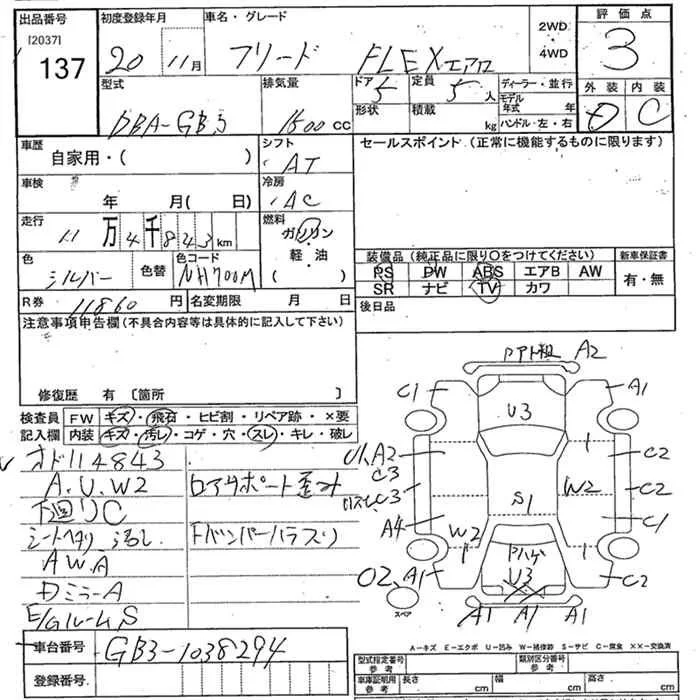 出品番号 初度登録年月 車名・グレード 2WD・4WD 評価点
[2037]
137 20 11月 フリード FLEX エアロ 3
型式 排気量 ドア 定員 ディーラー・並行 外装 内装
DBA-GB3 1500cc 5 5人 モデル年式 年 D C
形状 積載 kg ハンドル・左・右
車歴 自家用・( ) シフト AT セールスポイント (正常に機能するものに限ります)
車検 年 月( 日) 冷房 AC
走行 11万4千843km 燃料 ガソリン・軽・油 ( )
色 シルバー 色替 色コード NH700M
装備品 (純正品に限り○をつけてください) 新車保証書
PS PW ABS エアB AW 有・無
SR ナビ TV カワ
R券 11860円 名変期限 月 日 後日品
注意事項申告欄(不具合内容等は具体的に記入して下さい)
修復歴 有 〔箇所 〕
検査員 FW キズ・飛石・ヒビ割・リペア跡・×要
記入欄 内装 キズ・汚レ・コゲ・穴・スレ・キレ・破レ
オド114843
A.U.W2 ロアサポート歪み
下廻りC
シートヘタリ 汚レ Fバンパーハラズリ
AW.A
DミラーA
E/Gルーム S
A2
C1 A1
U3
U1,A2 C2
C3
C3 S1 W2 C2
A4 C1
W2
U3
A1 C2
スペア
A1 A1 A1
A-キズ E-エクボ U-凹み W-補修跡 S-サビ C-腐食 XX-交換済
車台番号 GB3-1038294
登録番号
型式指定番号 参考 類別区分番号 参考
車庫証明用 参考 長さ cm 幅 cm 高さ cm